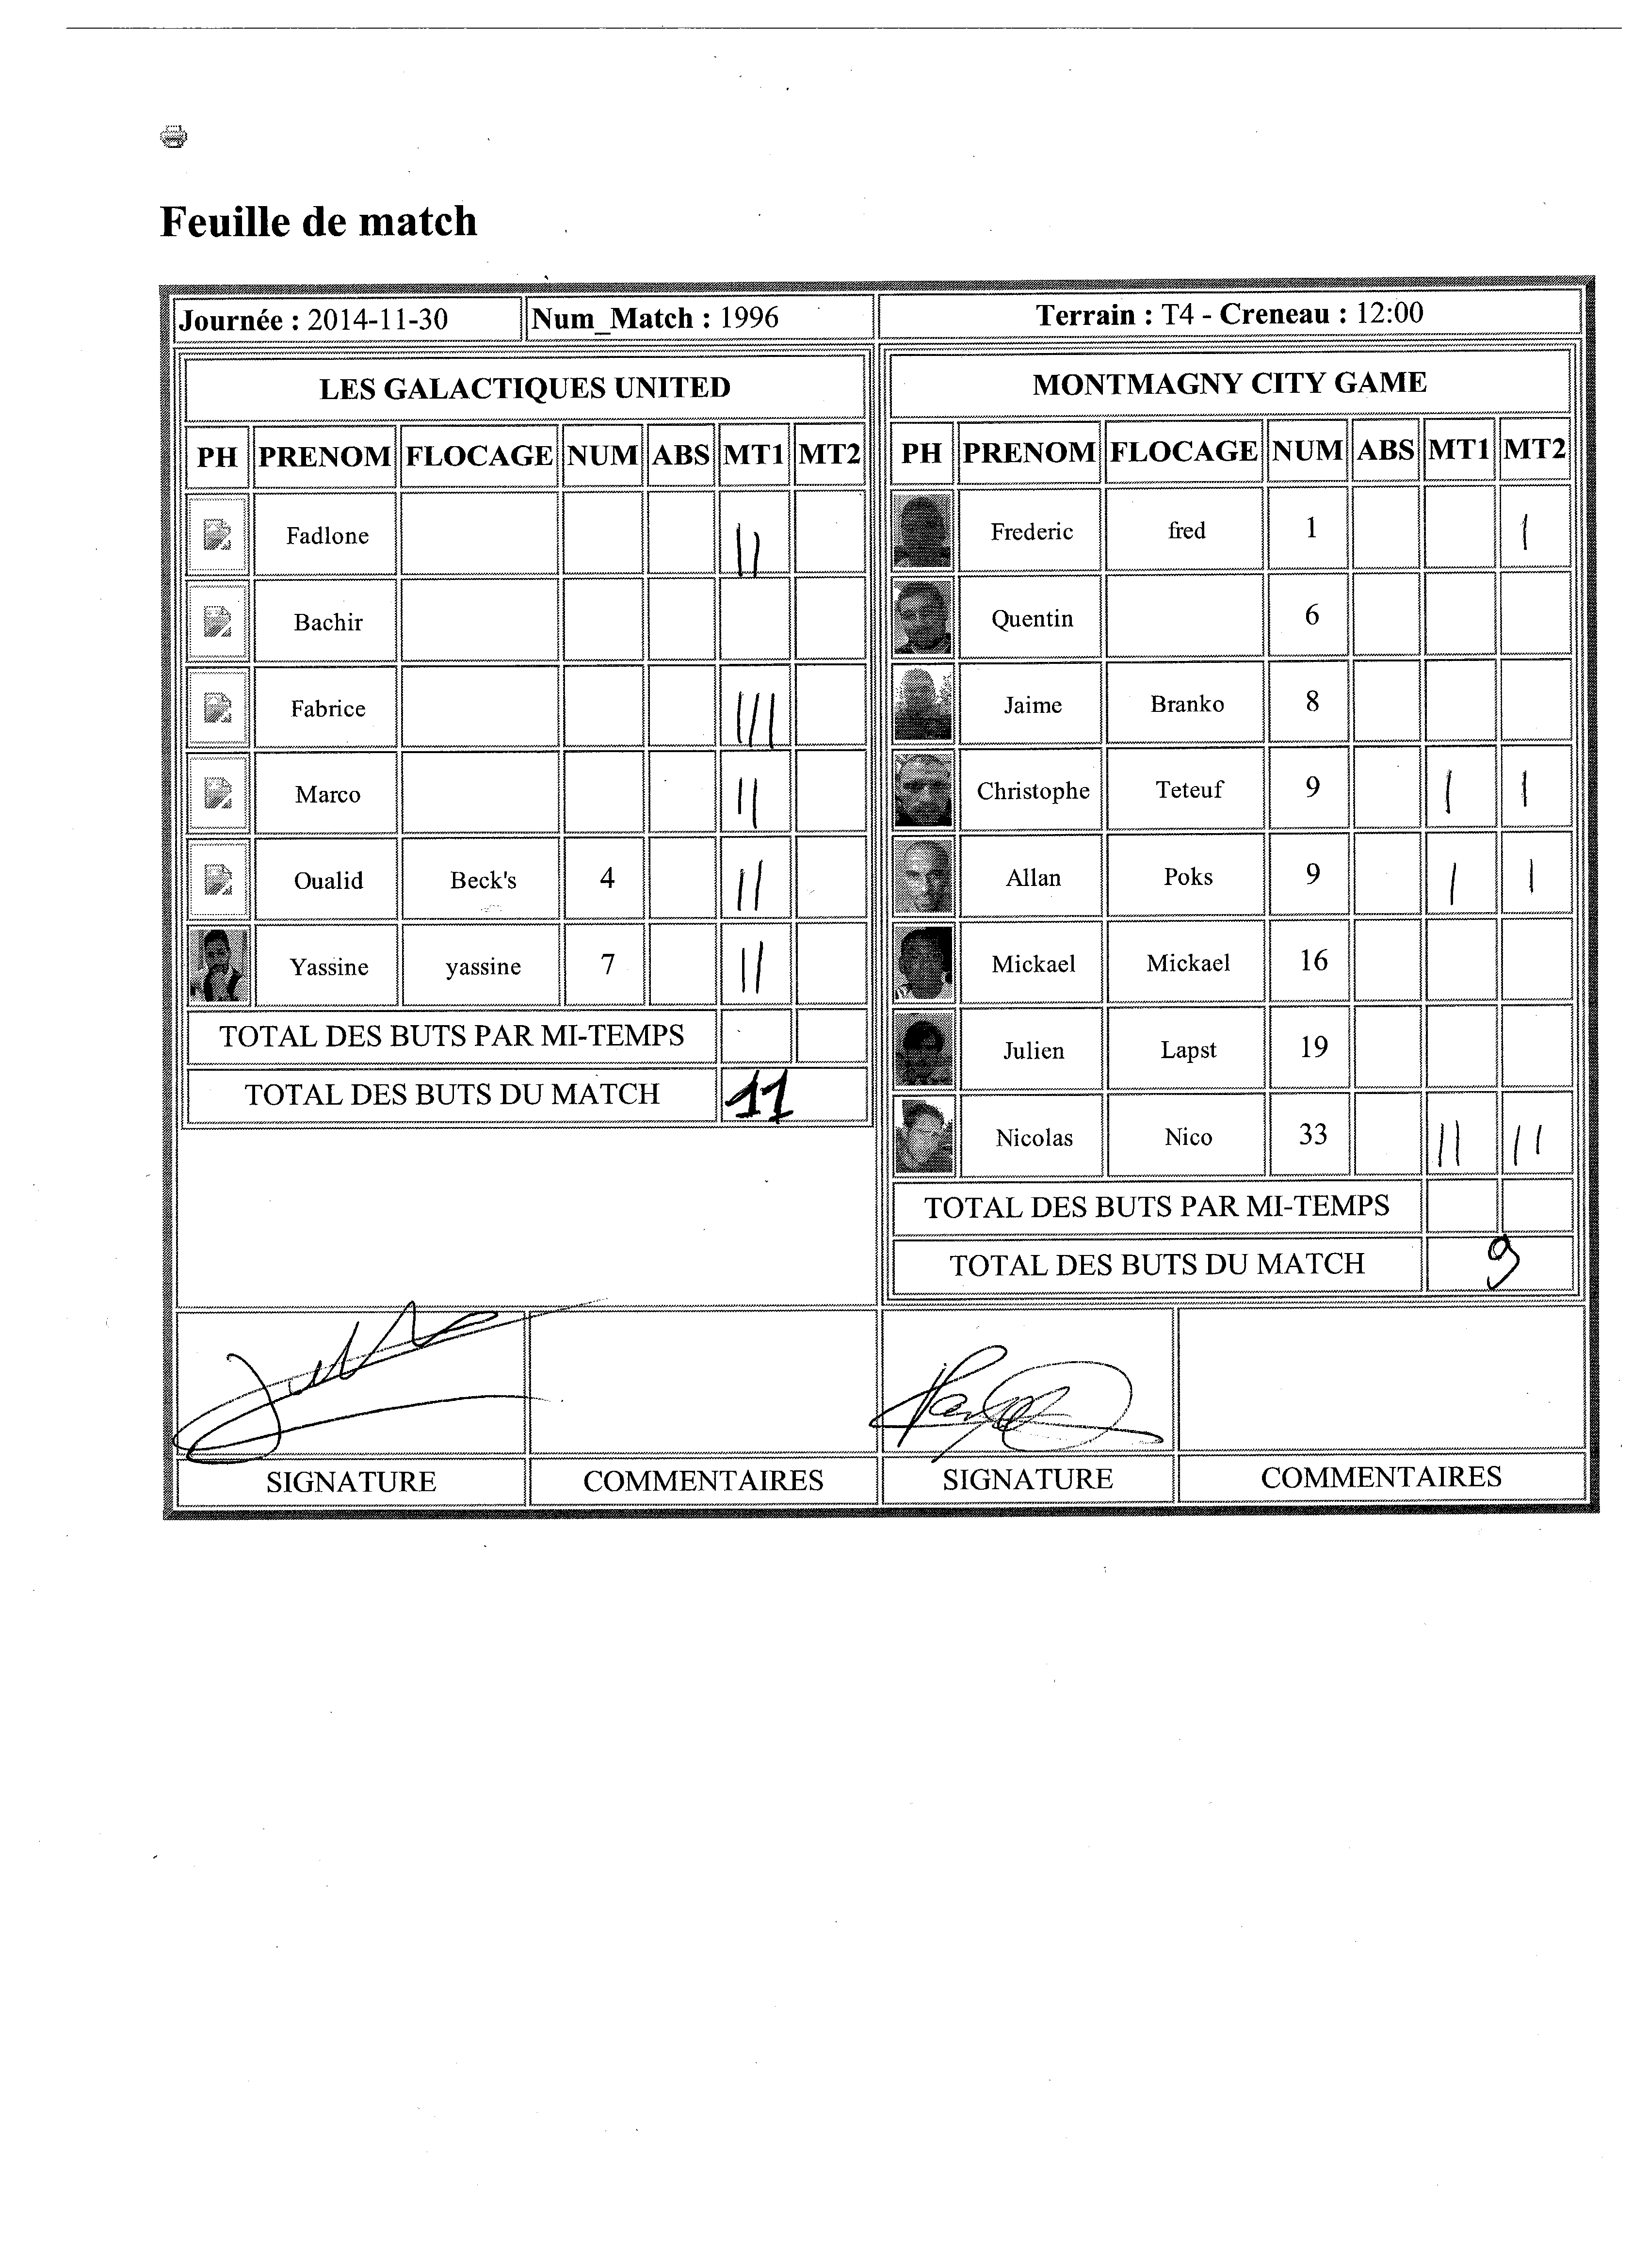 Feuille de match
Journée : 2014-11-30 Num_Match : 1996 Terrain : T4 - Creneau : 12:00
LES GALACTIQUES UNITED
PH PRENOM FLOCAGE NUM ABS MT1 MT2
Fadlone ||
Bachir
Fabrice |||
Marco ||
Oualid Beck's 4 ||
Yassine yassine 7 ||
TOTAL DES BUTS PAR MI-TEMPS
TOTAL DES BUTS DU MATCH 11
MONTMAGNY CITY GAME
PH PRENOM FLOCAGE NUM ABS MT1 MT2
Frederic fred 1 |
Quentin 6
Jaime Branko 8
Christophe Teteuf 9 | |
Allan Poks 9 | |
Mickael Mickael 16
Julien Lapst 19
Nicolas Nico 33 || ||
TOTAL DES BUTS PAR MI-TEMPS
TOTAL DES BUTS DU MATCH 9
SIGNATURE COMMENTAIRES SIGNATURE COMMENTAIRES